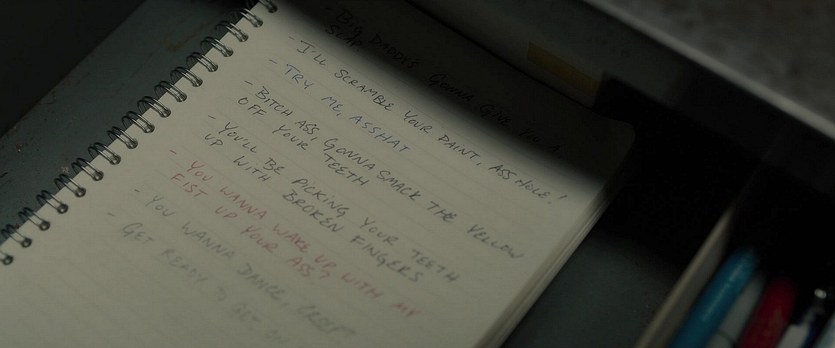 - BIG DADDY'S GONNA GIVE YOU A
SLAP
- I'LL SCRAMBLE YOUR PAINT, ASSHOLE!
- TRY ME, ASSHAT
- BITCH ASS, GONNA SMACK THE YELLOW
OFF YOUR TEETH
- YOU'LL BE PICKING YOUR TEETH
UP WITH BROKEN FINGERS
- YOU WANNA WAKE UP WITH MY
FIST UP YOUR ASS?
- YOU WANNA DANCE,
GET READY TO GET